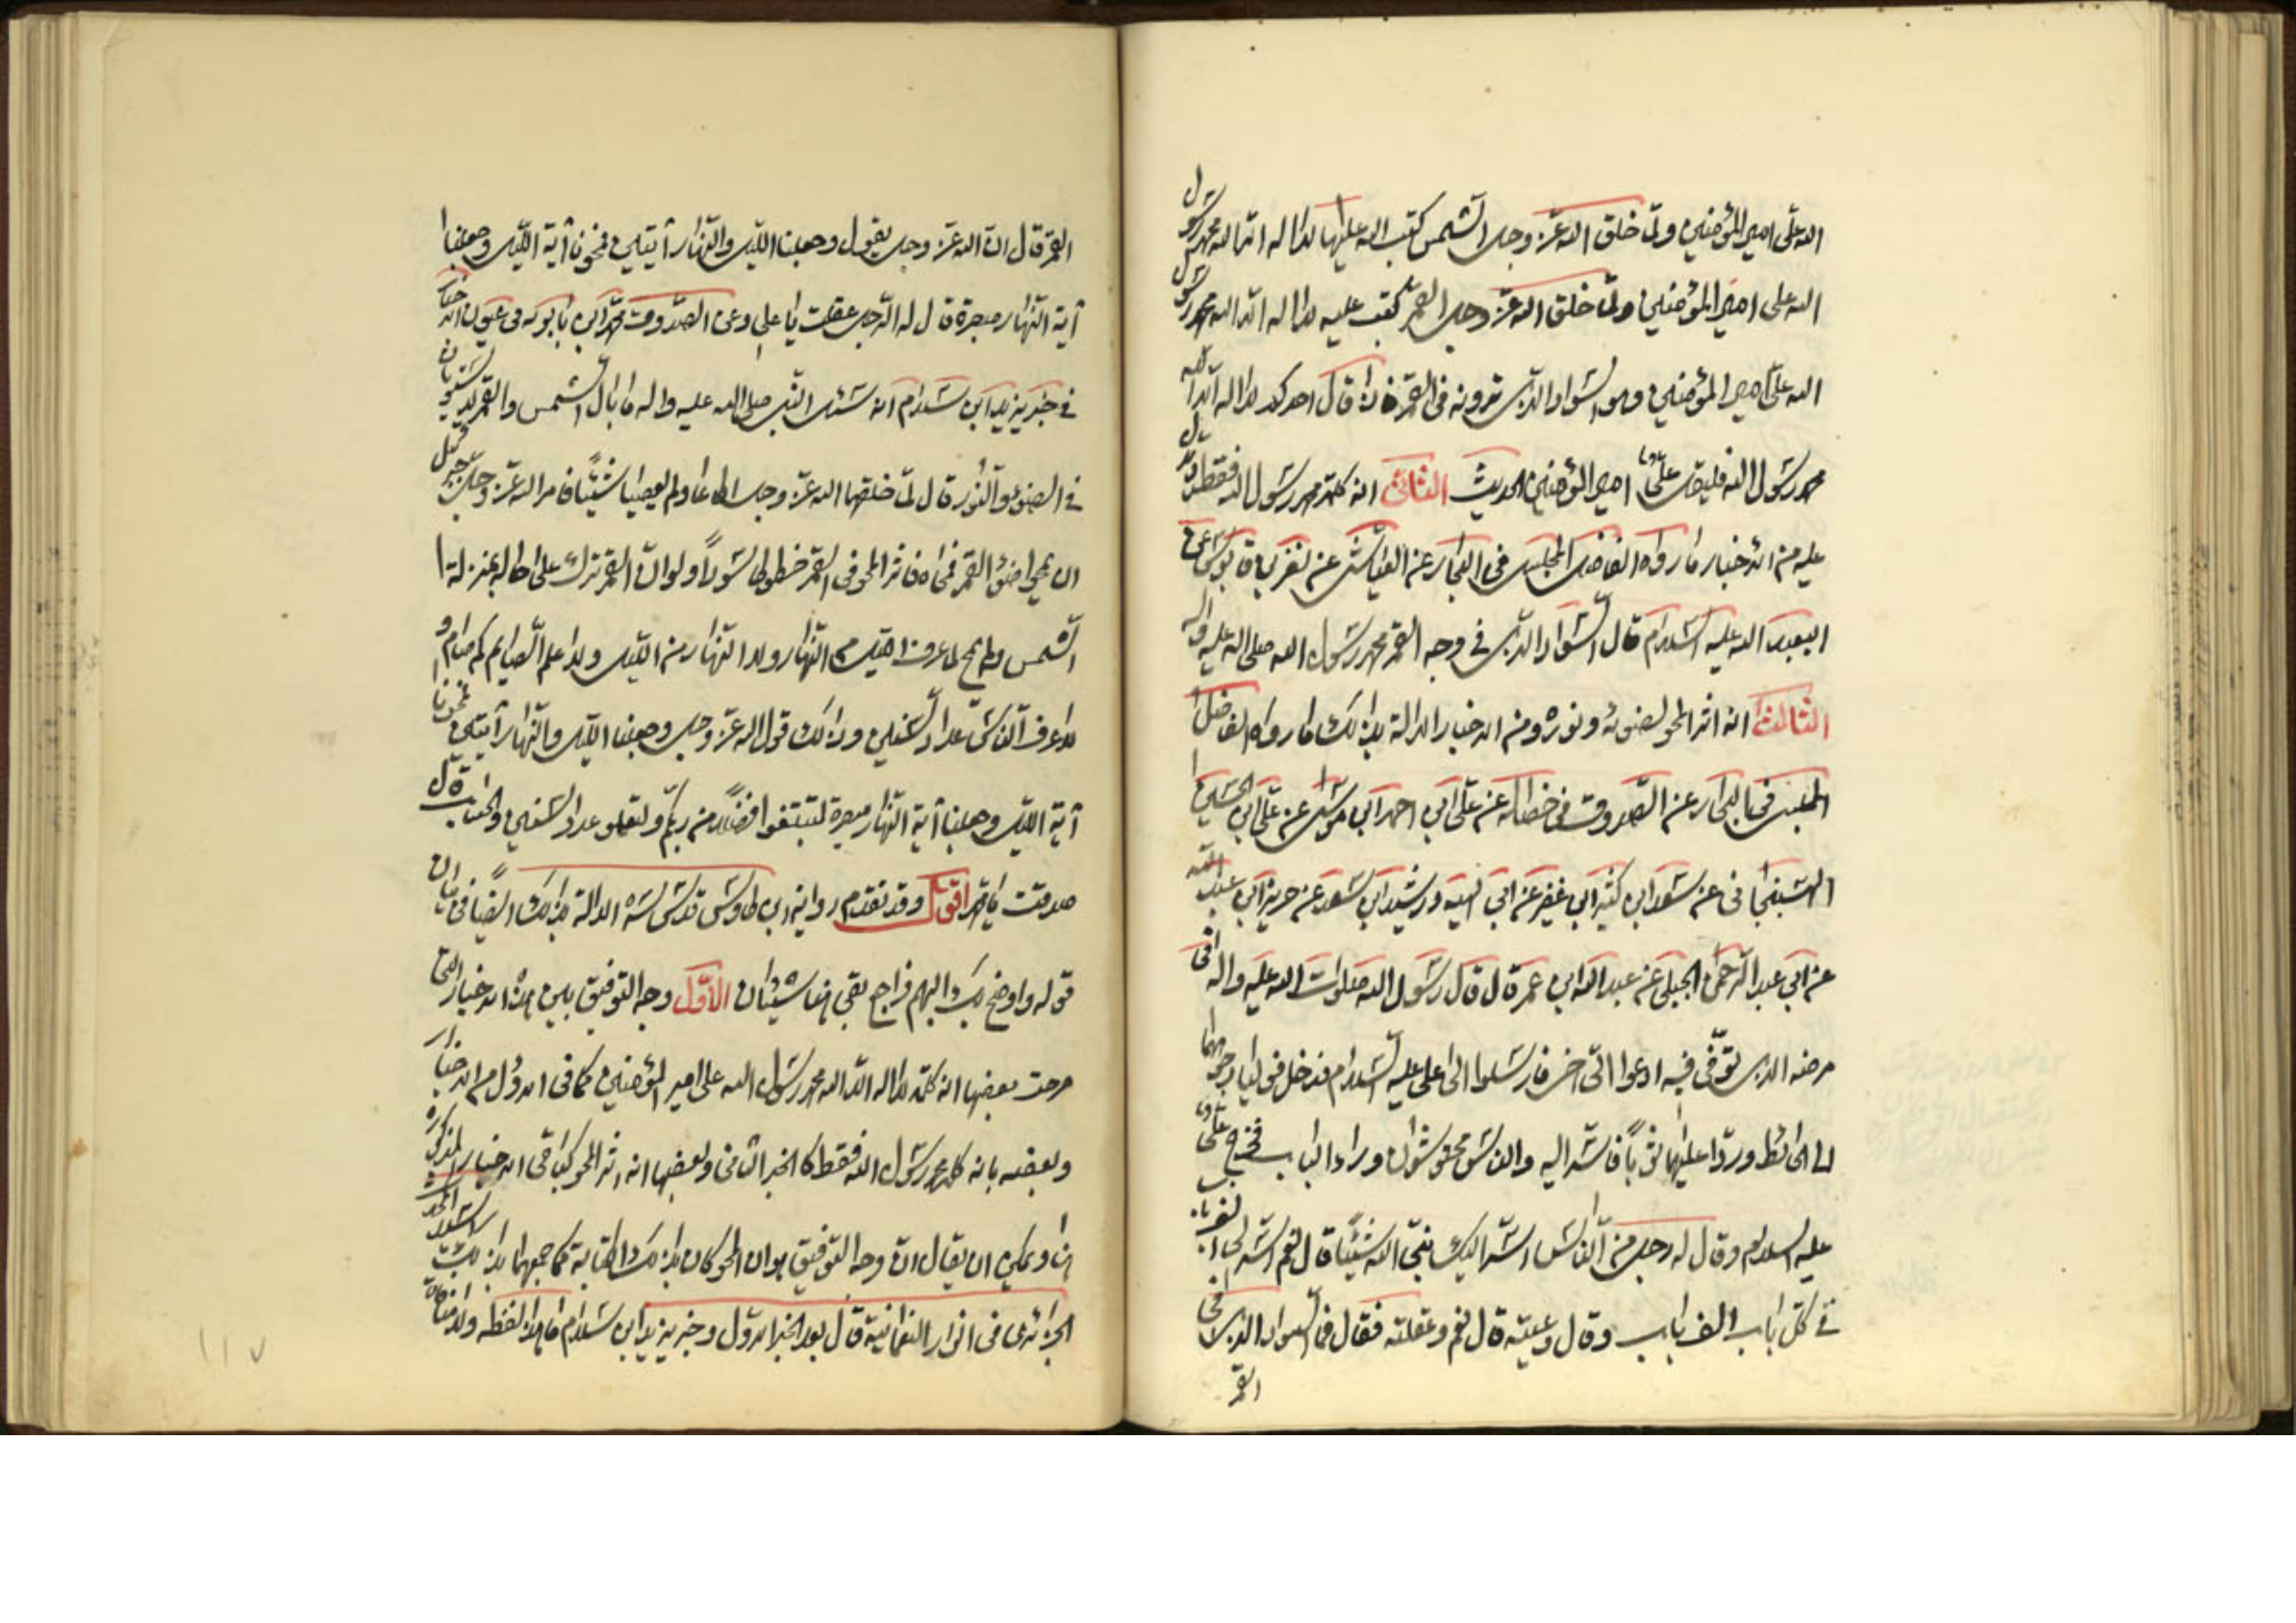 الله علی امیر المؤمنین ولمّا خلق الله عزّ وجل الشمس کتب الله علیها لا اله الا الله محمد رسول
الله علی امیر المؤمنین ولمّا خلق الله عزّ وجل القمر کتب علیه لا اله الا الله محمد رسول
الله علی امیر المؤمنین وهو السّواد الذی ترونه فی القمر فاذا قال احدکم لا اله الا الله
محمد رسول الله فلیقل علیّ امیر المؤمنین الحدیث الثانی انه کلمة محمد رسول الله فقط
علیه من الاخبار ما رواه الفاضل المجلسی فی البحار عن العیاشی عن نضر بن قابوس عن
ابیعبد الله علیه السّلام قال السّواد الذی فی وجه القمر محمد رسول الله صلی الله علیه واله
الثالث انه اثر المحو لضوئه ونوره ومن الاخبار الدالة بذلک ما رواه الفاضل
المجلسی فی البحار عن الصّدوق فی خصاله عن علی ابن احمد ابن موسی عن علی ابن الحسین
الهسنجانی عن سعد ابن کثیر ابن عفیر عن ابن لهیعه ورشید ابن سعد عن حریز ابن عبد الله
عن ابی عبد الرّحمن الحبلی عن عبد الله ابن عمر قال قال رسول الله صلوات الله علیه واله فی
مرضه الذی توفّی فیه ادعوا الیّ اخی فارسلوا الی علی علیه السّلام فدخل فولیا وجوههما
الی الحائط وردّا علیهما ثوباً فاسّر الیه والناس محتوشون وراء الباب فخرج علیّ
علیه السلام وقال له رجل من النّاس اسّر الیک نبیّ الله شیئاً قال نعم اسّر الیّ الف باب
فی کل باب الف باب وقال وعیته قال نعم وعقلته فقال فما السّواد الذی فی
القمر
القمر قال انّ الله عزّ وجل یقول وجعلنا اللّیل والنّهار آیتین فمحونا آیة اللّیل وجعلنا
آیة النّهار مبصرة قال له الرّجل عقلت یا علی وعن الصّدوق محمّد ابن بابویه فی عیون الاخبار
فی خبر یزید ابن سلام انه سئل النّبی صلی الله علیه واله ما بال الشّمس والقمر لا یستویان
فی الضوء والنّور قال لمّا خلقهما الله عزّ وجل اطاعا ولم یعصیا شیئاً فامر الله عزّ وجل جبرئیل
ان یمحی ضوء القمر فمحاه فاثر المحو فی القمر خطوطا سوداً ولو انّ القمر ترک علی حاله بمنزلة
الشّمس ولم یمح لما عرف اللیل من النّهار ولا النّهار من اللّیل ولا علم الصّایم کم صام و
لا عرف النّاس عدد السّنین وذلک قول الله عزّ وجل وجعلنا اللّیل والنّهار آیتین فمحونا
آیة اللّیل وجعلنا آیة النّهار مبصرة لتبتغوا فضلاً من ربّکم ولتعلموا عدد السّنین والحساب قال
صدقت یا محمد اقول وقد تقدم روایة ابن طاوس قدّس سّره الدالة بذلک ایضاً فی بیان
قوله واوضح بک البهم فراجع بقی هنا شیئان الاوّل وجه التوفیق بین هذه الاخبار التی
صرحت بعضها انه کلمة لا اله الا الله محمد رسول الله علی امیر المؤمنین کما فی الاوّل من الاخبار
وبعضه بانه کلمة محمد رسول الله فقط کالخبر الثانی وبعضها انه اثر المحو کباقی الاخبار المذکوره
ویمکن ان یقال انّ وجه التوفیق هو ان المحو کان بذلک الکتابة کما جمعهما بذلک السّید
الجزائری فی انوار النعمانیة قال بعد الخبر الاوّل وخبر یزید ابن سلام ما هذا لفظه ولا منافاة